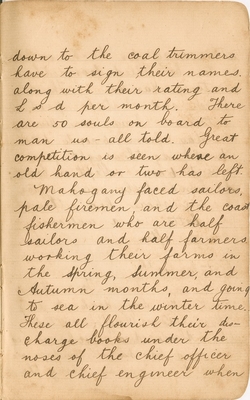 down to the coal trimmers
have to sign their names.
along with their rating and
L s d per month. There
are 50 souls on board to
man us - all told. Great
competition is seen where an
old hand or two has left.
Mahogany faced sailors,
pale firemen, and the coast
fishermen who are half
sailors and half farmers,
working their farms in
the Spring, Summer, and
Autumn months, and going
to sea in the winter time.
These all flourish their dis-
charge books under the
noses of the chief officer
and chief engineer when